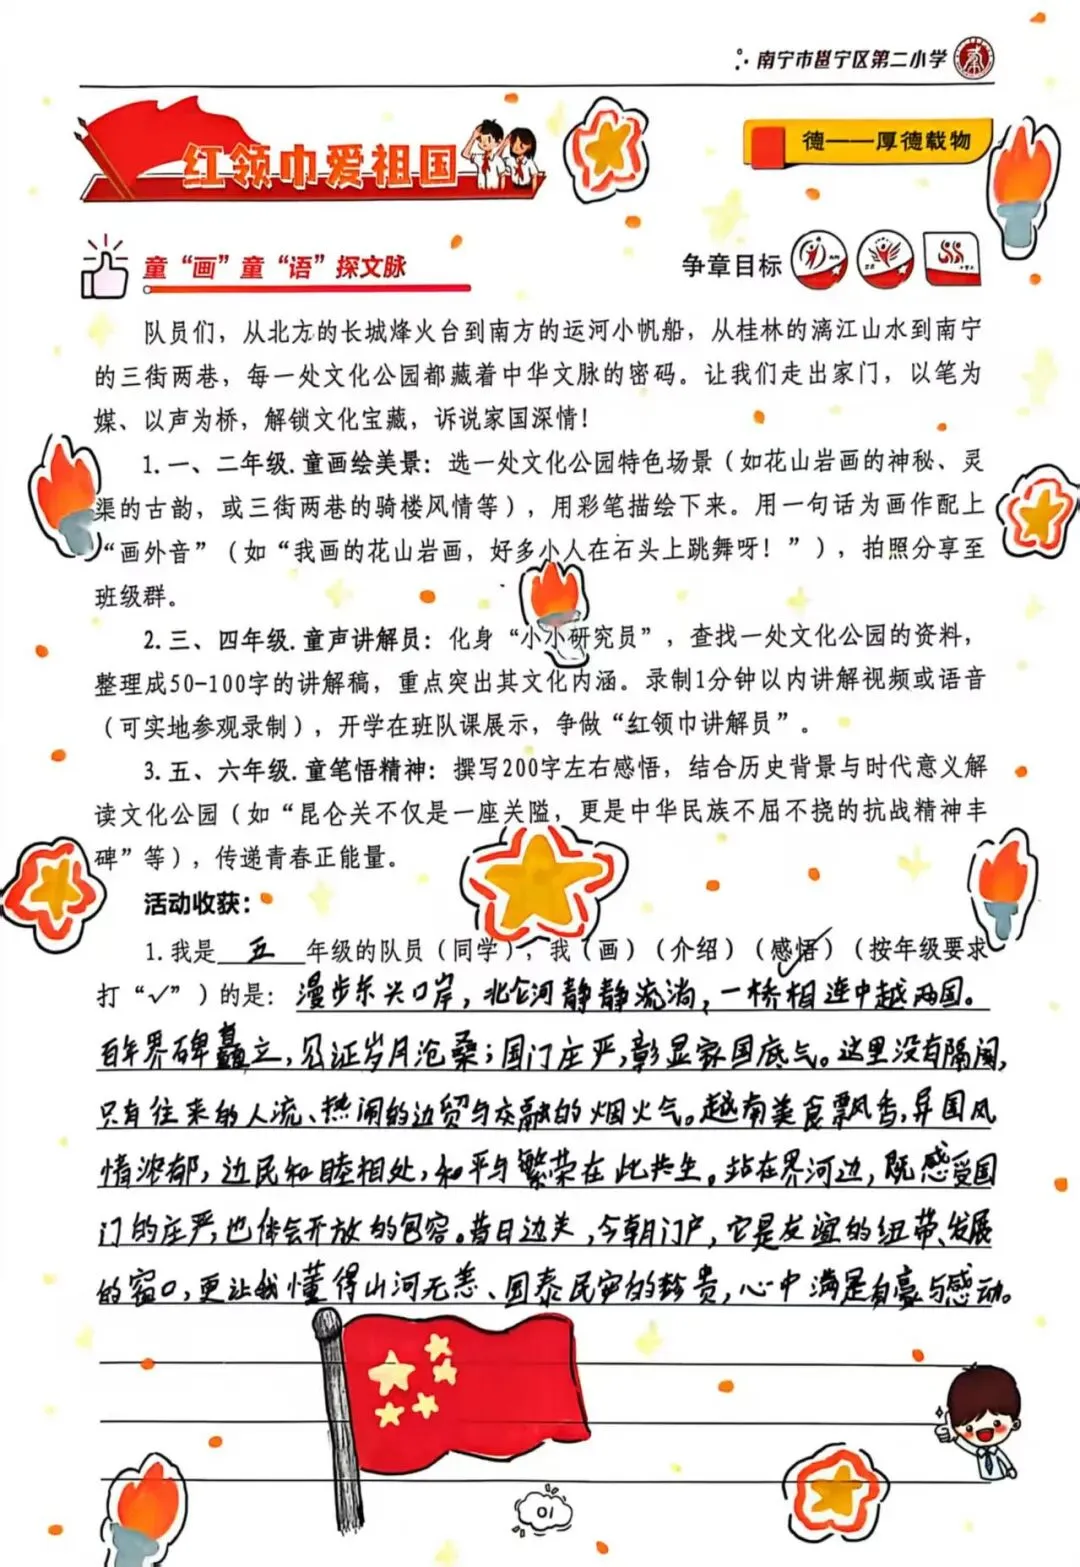 南宁市邕宁区第二小学
红领巾爱祖国
德——厚德载物
童“画”童“语”探文脉
争章目标
队员们，从北方的长城烽火台到南方的运河小帆船，从桂林的漓江山水到南宁
的三街两巷，每一处文化公园都藏着中华文脉的密码。让我们走出家门，以笔为
媒、以声为桥，解锁文化宝藏，诉说家国深情！
1.一、二年级.童画绘美景：选一处文化公园特色场景（如花山岩画的神秘、灵
渠的古韵，或三街两巷的骑楼风情等），用彩笔描绘下来。用一句话为画作配上
“画外音”（如“我画的花山岩画，好多小人在石头上跳舞呀！”），拍照分享至
班级群。
2.三、四年级.童声讲解员：化身“小小研究员”，查找一处文化公园的资料，
整理成50-100字的讲解稿，重点突出其文化内涵。录制1分钟以内讲解视频或语音
（可实地参观录制），开学在班队课展示，争做“红领巾讲解员”。
3.五、六年级.童笔悟精神：撰写200字左右感悟，结合历史背景与时代意义解
读文化公园（如“昆仑关不仅是一座关隘，更是中华民族不屈不挠的抗战精神丰
碑”等），传递青春正能量。
活动收获：
1.我是 五 年级的队员（同学），我（画）（介绍）（感悟）（按年级要求
打“√”）的是：漫步东兴口岸，北仑河静静流淌，一桥相连中越两国。
百年界碑矗立，见证岁月沧桑；国门庄严，彰显家国底气。这里没有隔阂，
只有往来的人流、热闹的边贸与交融的烟火气。越南美食飘香，异国风
情浓郁，边民和睦相处，和平与繁荣在此共生。站在界河边，既感受国
门的庄严，也体会开放的包容。昔日边关，今朝门户，它是友谊的纽带、发展
的窗口，更让我懂得山河无恙、国泰民安的珍贵，心中满是自豪与感动。
01